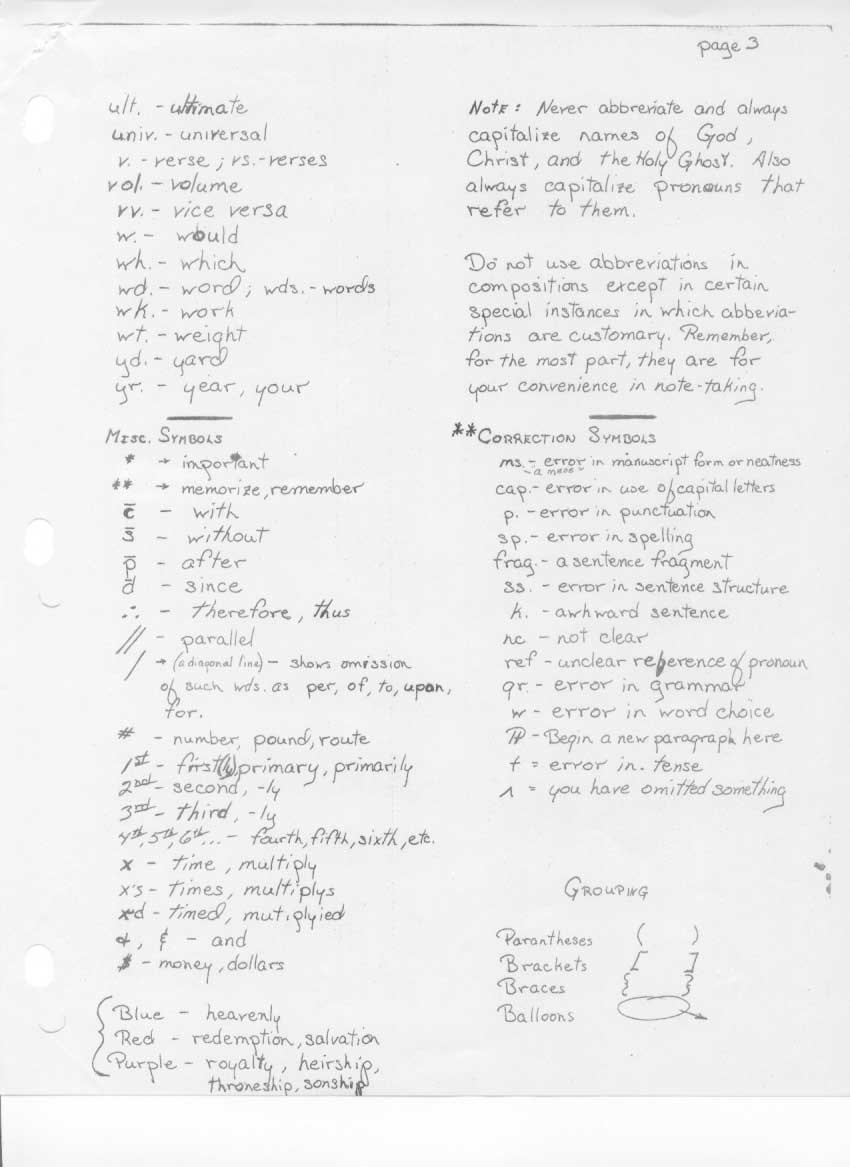 page 3
ult. - ultimate
univ. - universal
v. - verse ; vs. - verses
vol. - volume
vv. - vice versa
w. - would
wh. - which
wd. - word ; wds. - words
wk. - work
wt. - weight
yd. - yard
yr. - year, your
MISC. SYMBOLS
* → important
** → memorize, remember
c̅ - with
s̅ - without
p̅ - after
d̅ - since
∴ - therefore, thus
// - parallel
/ → (a diagonal line) - shows omission
of such wds. as per, of, to, upon,
for.
# - number, pound, route
1st - first(ly) primary, primarily
2nd - second, -ly
3rd - third, -ly
4th, 5th, 6th, ... - fourth, fifth, sixth, etc.
x - time, multiply
x's - times, multiplys
x'd - timed, mutiglyied
&, & - and
$ - money, dollars
{ Blue - heavenly
Red - redemption, salvation
Purple - royalty, heirship,
throneship, sonship
NOTE: Never abbreviate and always
capitalize names of God,
Christ, and the Holy Ghost. Also
always capitalize pronouns that
refer to them.
Do not use abbreviations in
compositions except in certain
special instances in which abberia-
tions are customary. Remember,
for the most part, they are for
your convenience in note-taking.
**CORRECTION SYMBOLS
ms. - error in manuscript form or neatness
- a mess -
cap. - error in use of capital letters
p. - error in punctuation
sp. - error in spelling
frag. - a sentence fragment
ss. - error in sentence structure
k. - awhward sentence
nc - not clear
ref - unclear reference of pronoun
gr. - error in grammar
w - error in word choice
¶ - Begin a new paragraph here
t = error in. tense
^ = you have omitted something
GROUPING
Parantheses ( )
Brackets [ ]
Braces { }
Balloons